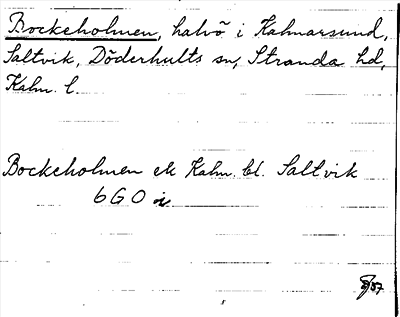 Bockeholmen, halvö i Kalmarsund,
Saltvik, Döderhults sn, Stranda hd,
Kalm. l.
Bockeholmen ek Kalm. bl. Saltvik
6 G O
57